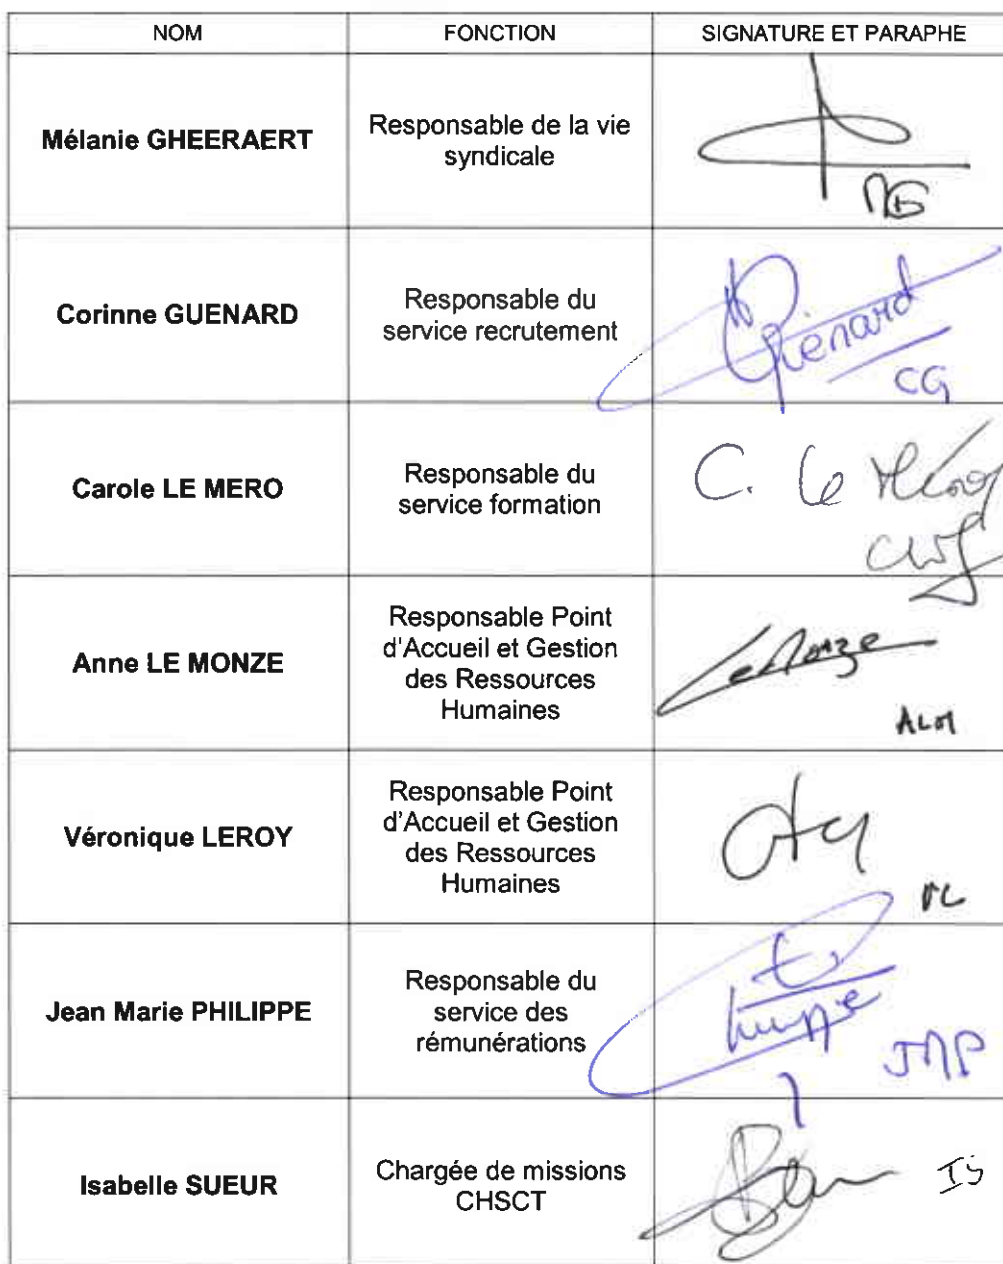 NOM FONCTION SIGNATURE ET PARAPHE
Mélanie GHEERAERT
Responsable de la vie
syndicale
MG
Corinne GUENARD
Responsable du
service recrutement
Guénard
CG
Carole LE MERO
Responsable du
service formation
C. Le Méro
Anne LE MONZE
Responsable Point
d'Accueil et Gestion
des Ressources
Humaines
Le Monze
ALM
Véronique LEROY
Responsable Point
d'Accueil et Gestion
des Ressources
Humaines
VL
Jean Marie PHILIPPE
Responsable du
service des
rémunérations
JMP
Isabelle SUEUR
Chargée de missions
CHSCT
IS